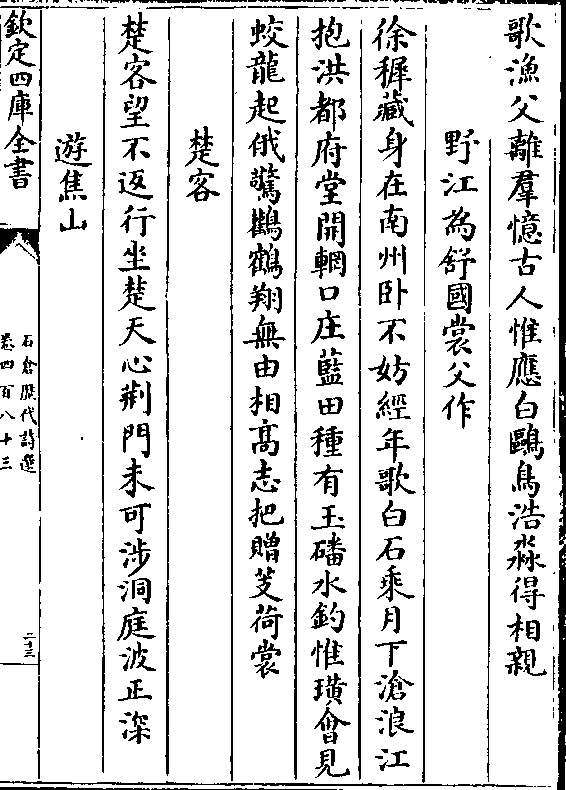 歌漁父離羣憶古人惟應白鷗鳥浩淼得相親
野江為舒國裳父作
徐穉藏身在南州卧不妨經年歌白石乘月下滄浪江
抱洪都府堂開輞口庄藍田種有玉磻水釣惟璜會見
蛟龍起俄驚鸛鶴翔無由相髙志把贈芰荷裳
楚客
楚客望不返行坐楚天心荆門未可涉洞庭波正深
遊焦山
欽定四庫全書
石倉歷代詩選
卷四百八十三
二十三